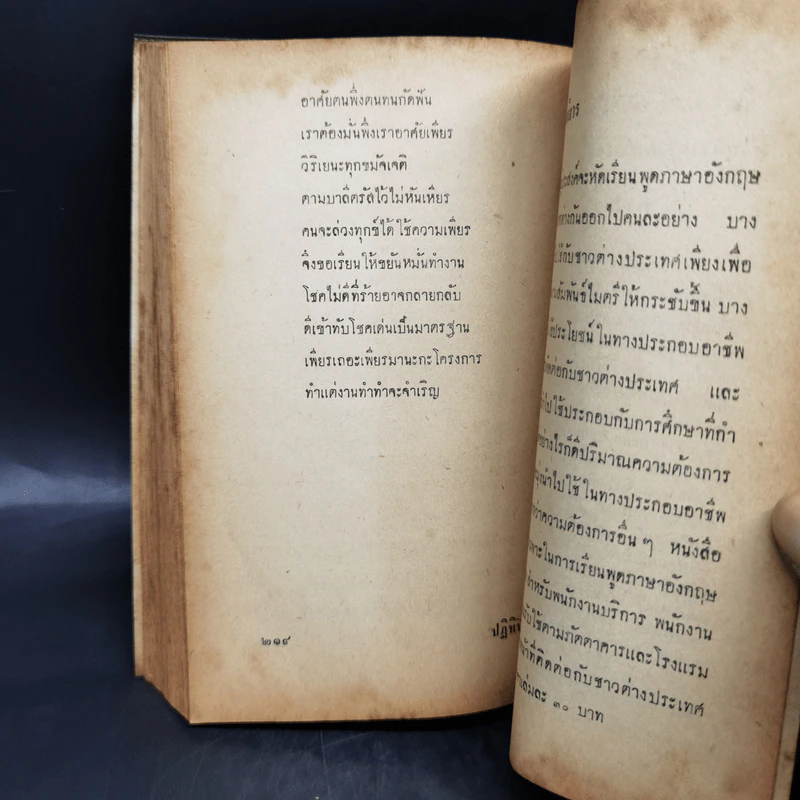 อาศัยตนพึ่งตนทนกัดฟัน
เราต้องมั่นพึ่งเราอาศัยเพียร
วิริเยนะทุกขมัจเจติ
ตามบาลีตรัสไว้ไม่หันเหียร
คนจะล่วงทุกข์ได้ใช้ความเพียร
จึ่งขอเรียนให้ขยันหมั่นทำงาน
โชคไม่ดีที่ร้ายอาจกลายกลับ
ดีเข้าทับโชคเด่นเป็นมาตรฐาน
เพียรเถอะเพียรมานะกะโครงการ
ทำแต่งานทำทำจะจำเริญ
๒๑๔
จะหัดเรียนพูดภาษาอังกฤษ
ออกไปคนละอย่าง บาง
กับชาวต่างประเทศเพียงเพื่อ
สัมพันธ์ไมตรีให้กระชับขึ้น บาง
ประโยชน์ในทางประกอบอาชีพ
ต่อกับชาวต่างประเทศ และ
ไปใช้ประกอบกับการศึกษาที่กำ
อย่างไรก็ดีปริมาณความต้องการ
นำไปใช้ในทางประกอบอาชีพ
ว่าความต้องการอื่นๆ หนังสือ
ในการเรียนพูดภาษาอังกฤษ
สำหรับพนักงานบริการ พนักงาน
ใช้ตามภัตตาคารและโรงแรม
ที่ติดต่อกับชาวต่างประเทศ
เล่มละ ๓๐ บาท